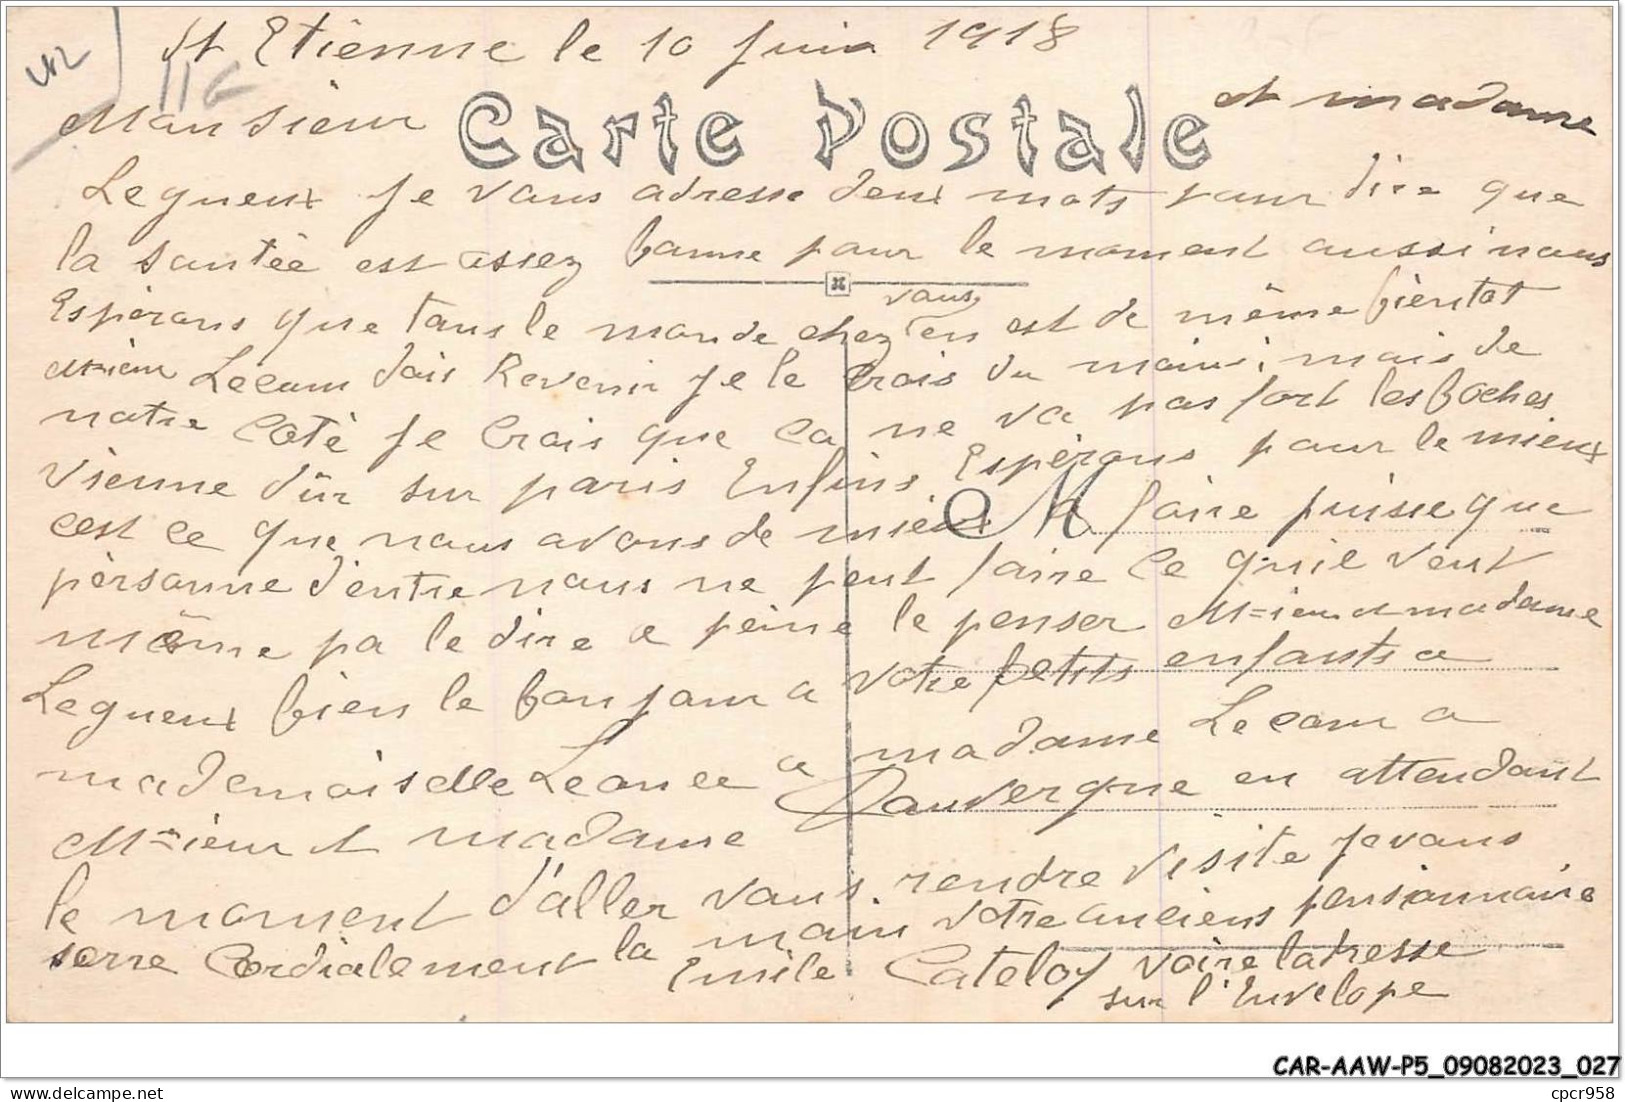 St Etienne le 10 juin 1918
116
Carte Postale
Monsieur et madame
Legueux je vous adresse deux mots pour dire que
la santée est assez bonne pour le moment aussi nous
Espèrons que tous le monde chez vous en est de même bientot
M=ieur Lecam dois Revenir je le Crois du moins; mais de
notre Coté je Crois que ca ne va pas fort les boches
vienne dûr sur paris Enfins Espèrons pour le mieux
cest ce que nous avons de mieux a faire puisse que
pèrsonne d'entre nous ne peut faire ce quil veut
même pa le dire a peine le penser M=ieur et madame
Legueux bien le bonjour a votre petits enfants a
mademoiselle Leonce a madame Lecam a
M=ieur et madame Dauvergne en attendant
le moment d'aller vous rendre visite je vous
serre Cordialement la main votre anciens pensionnaire
Emile Cateloy voire ladresse
sur l'Envelope
M
CAR-AAW-P5_09082023_027
cpcr958